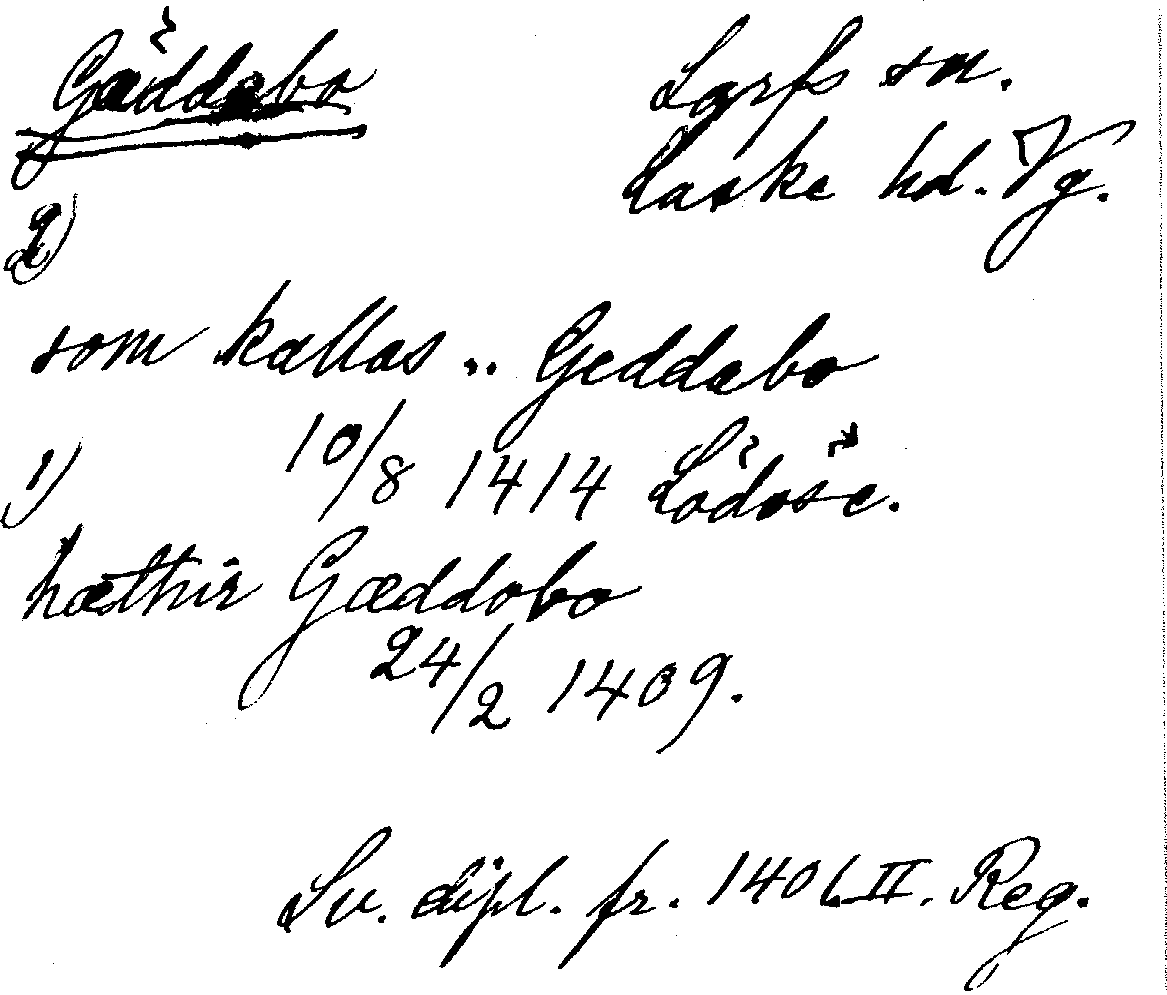 Gäddabo
Larfs sn.
Laske hd. Vg.
2)
som kallas .. Geddabo
10/8 1414 Lödöse.
1)
hæthir Gæddobo
24/2 1409.
Sv. dipl. fr. 1401. II. Reg.